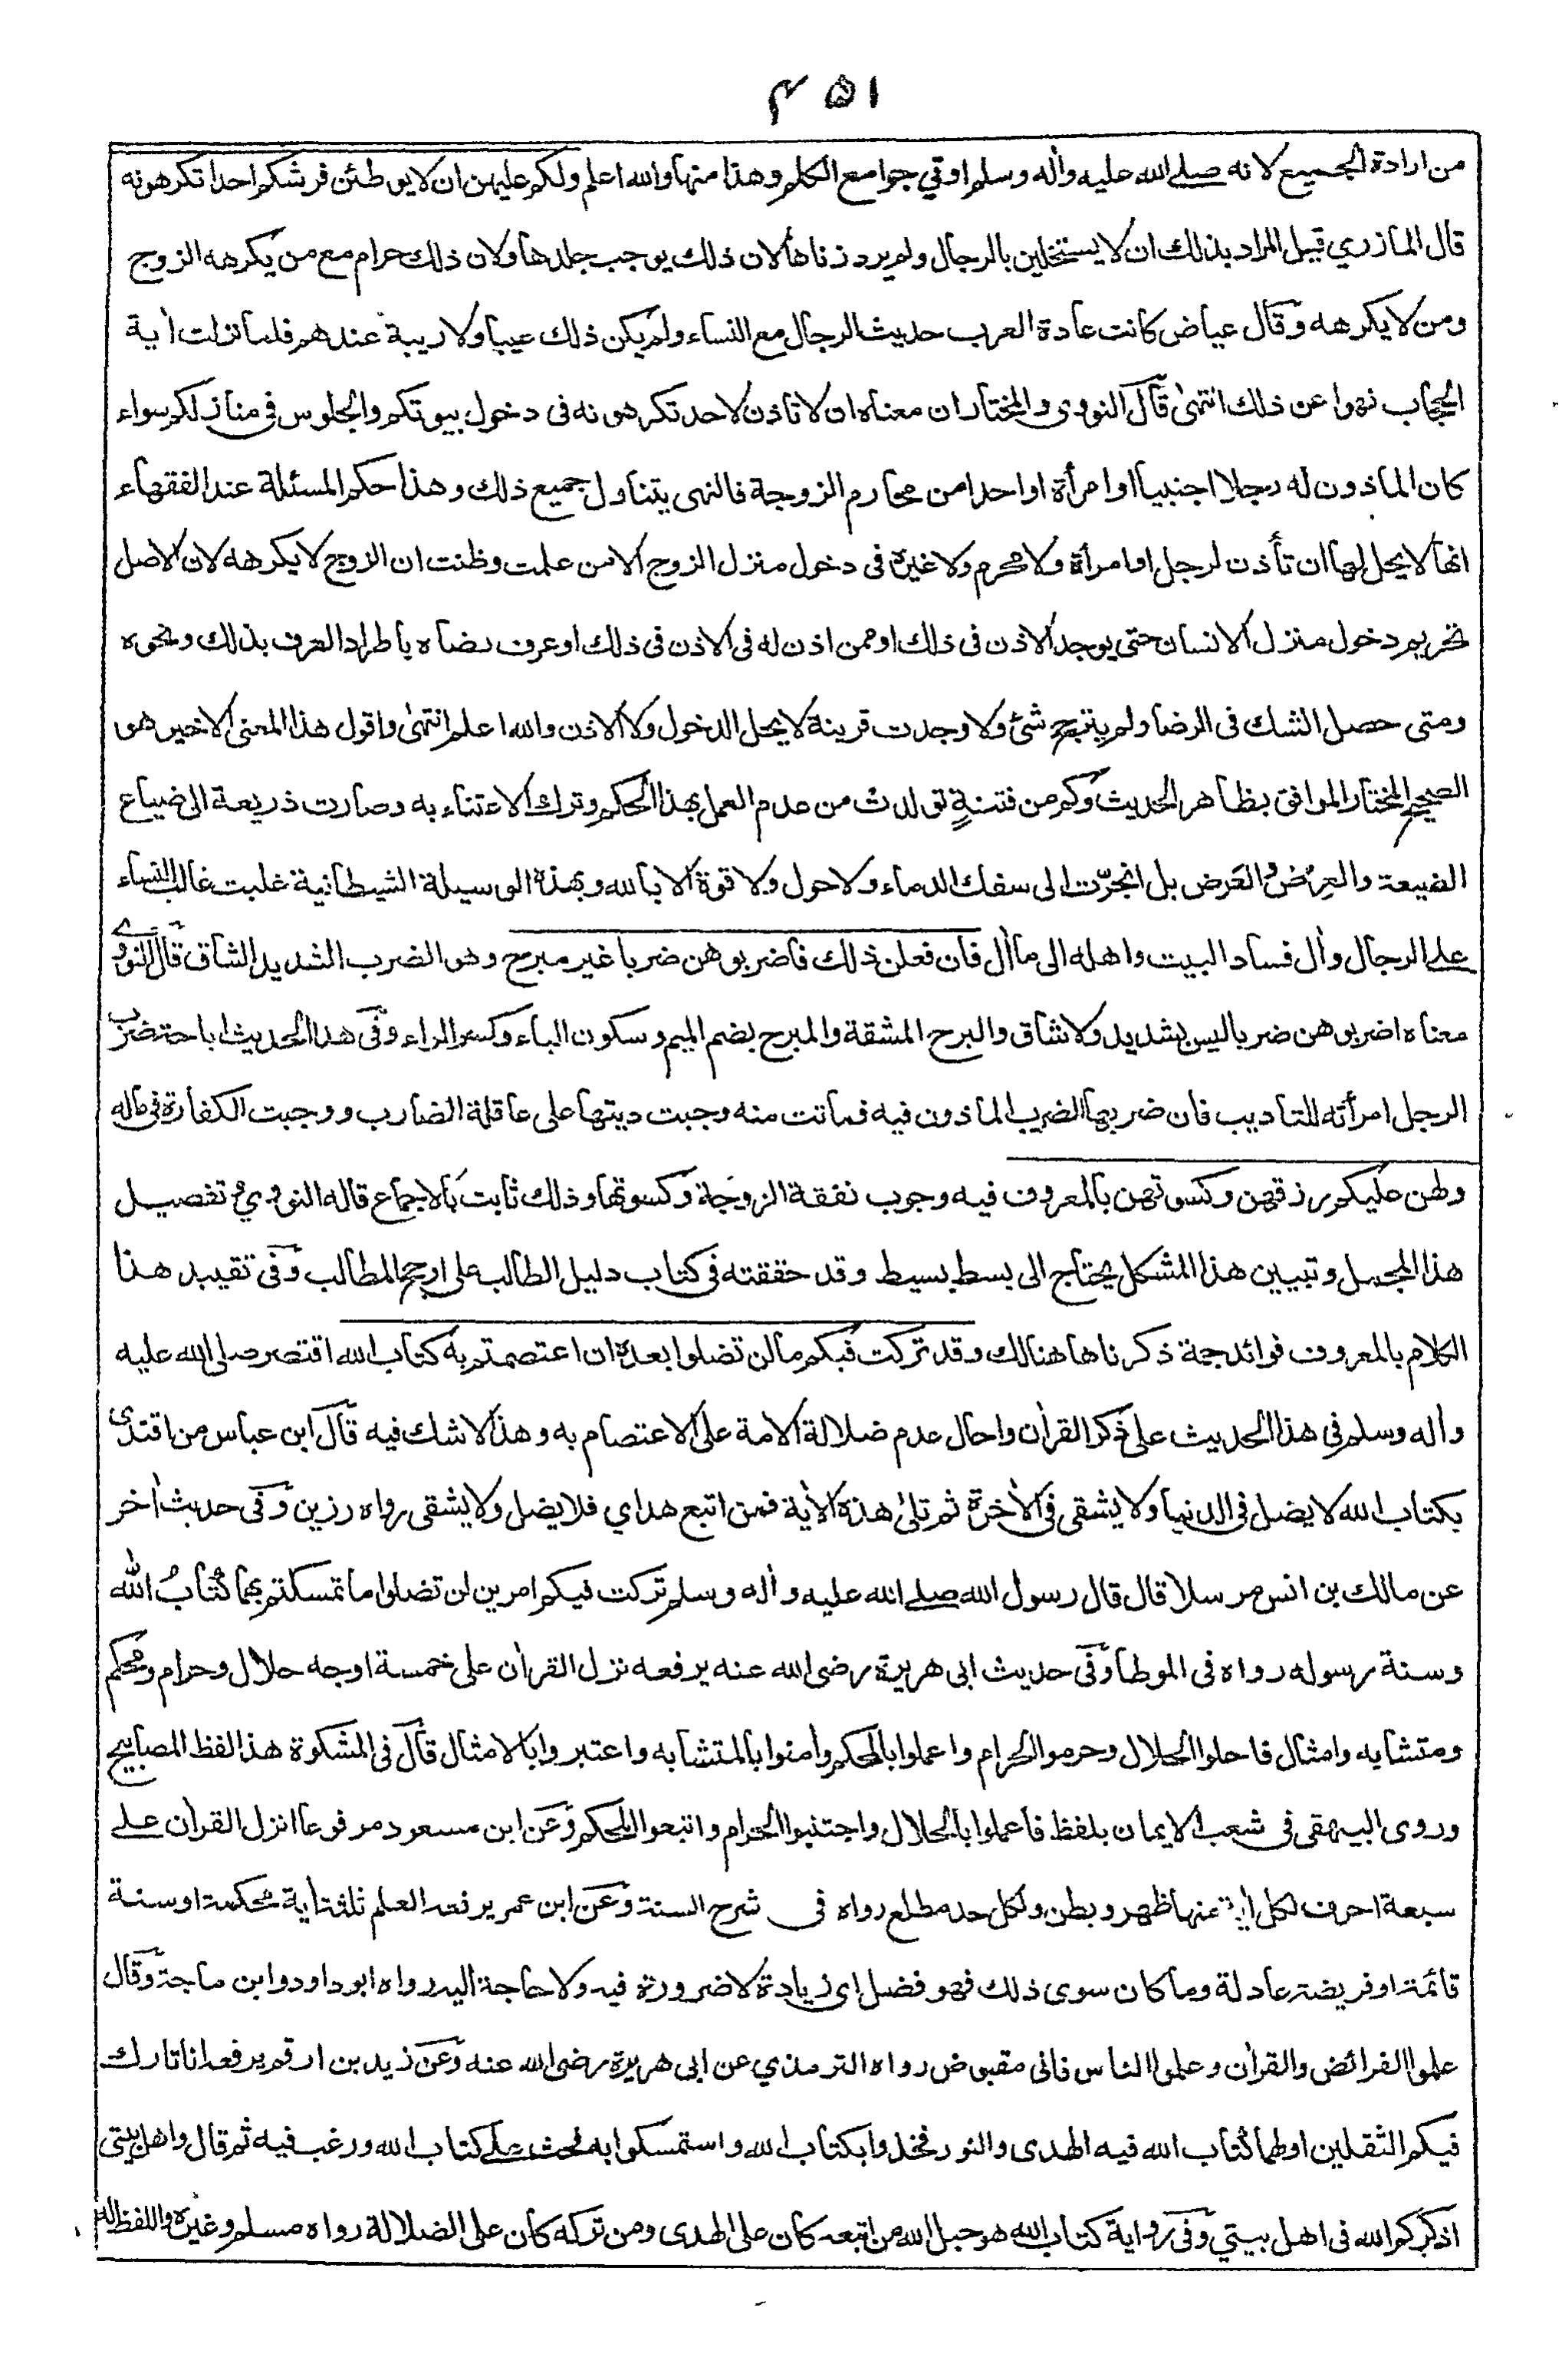 ۴۵۱
من ارادة الجميع لانه صلى الله عليه واٰله وسلم اوتي جوامع الكلم وهذا منها والله اعلم ولكم عليهن ان لا يوطئن فرشكم احدا تكرهونه
قال المازري قيل المراد بذلك ان لا يستخلين بالرجال ولم يرد زناها لان ذلك يوجب جلدها ولان ذلك حرام مع من يكرهه الزوج
ومن لا يكرهه وقال عياض كانت عادة العرب حديث الرجال مع النساء ولم يكن ذلك عيبا ولا ريبة عندهم فلما نزلت اٰية
الحجاب نهوا عن ذلك انتهىٰ قال النووى والمختار ان معناه ان لا تاذن لاحد تكرهونه فى دخول بيوتكم والجلوس فى منازلكم سواء
كان الماذون له رجلا اجنبيا او امرأة او احدا من محارم الزوجة فالنهى يتناول جميع ذلك وهذا حكم المسئلة عند الفقهاء
انها لا يحل لها ان تأذن لرجل او امرأة ولا محرم ولا غيره فى دخول منزل الزوج الا من علمت وظنت ان الزوج لا يكرهه لان الاصل
تحريم دخول منزل الانسان حتى يوجد الاذن فى ذلك او ممن اذن له فى الاذن فى ذلك او عرف رضاه باطراد العرف بذلك ونحوه
ومتى حصل الشك فى الرضا ولم يترجح شئ ولا وجدت قرينة لا يحل الدخول ولا الاذن والله اعلم انتهىٰ واقول هذا المعنى الاخير هو
الصحيح المختار الموافق بظاهر الحديث وكم من فتنةٍ تولدت من عدم العمل بهذا الحكم وترك الاعتناء به وصارت ذريعة الى ضياع
الضيعة والعِرض والعَرض بل انجرّت الى سفك الدماء ولا حول ولا قوة الا بالله وبهذه الوسيلة الشيطانية غلبت غالب النساء
على الرجال واٰل فساد البيت واهله الى ما اٰل فان فعلن ذلك فاضربوهن ضربا غير مبرح وهو الضرب الشديد الشاق قال النووي
معناه اضربوهن ضربا ليس بشديد ولا شاق والبرح المشقة والمبرح بضم الميم وسكون الباء وكسر الراء وفى هذا الحديث اباحة ضرب
الرجل امرأته للتاديب فان ضربها الضرب الماذون فيه فماتت منه وجبت ديتها على عاقلة الضارب ووجبت الكفارة فى ماله
ولهن عليكم رزقهن وكسوتهن بالمعروف فيه وجوب نفقة الزوجة وكسوتها وذلك ثابت بالاجماع قاله النووي و تفصيل
هذا المجمل وتبيين هذا المشكل يحتاج الى بسط بسيط وقد حققته فى كتاب دليل الطالب على ارجح المطالب وفى تقييد هذا
الكلام بالمعروف فوائد جمة ذكرناها هنالك وقد تركت فيكم ما لن تضلوا بعده ان اعتصمتم به كتاب الله اقتصر صلى الله عليه
واٰله وسلم فى هذا الحديث على ذكر القراٰن واحال عدم ضلالة الامة على الاعتصام به وهذا لا شك فيه قال ابن عباس من اقتدى
بكتاب الله لا يضل فى الدنيا ولا يشقى فى الاٰخرة ثم تلىٰ هذه الاٰية فمن اتبع هداي فلا يضل ولا يشقى رواه رزين وفى حديث اٰخر
عن مالك بن انس مرسلا قال قال رسول الله صلى الله عليه واٰله وسلم تركت فيكم امرين لن تضلوا ما تمسكتم بهما كتابُ الله
وسنة رسوله رواه فى الموطا وفى حديث ابى هريرة رضى الله عنه يرفعه نزل القراٰن على خمسة اوجه حلال وحرام ومحكم
ومتشابه وامثال فاحلوا الحلال وحرموا الحرام واعملوا بالمحكم واٰمنوا بالمتشابه واعتبروا بالامثال قال فى المشكوة هذا لفظ المصابيح
وروى البيهقى فى شعب الايمان بلفظ فاعملوا بالحلال واجتنبوا الحرام واتبعوا المحكم وعن ابن مسعود مرفوعا انزل القراٰن على
سبعة احرف لكل اٰية منها ظهر وبطن ولكل حد مطلع رواه فى شرح السنة وعن ابن عمر يرفعه العلم ثلثة اٰية محكمة او سنة
قائمة او فريضة عادلة وما كان سوى ذلك فهو فضل اى زيادة لا ضرورة فيه ولا حاجة اليه رواه ابو داود وابن ماجة وقال
علموا الفرائض والقراٰن وعلموا الناس فانى مقبوض رواه الترمذي عن ابى هريرة رضى الله عنه وعن زيد بن ارقم يرفعه انا تارك
فيكم الثقلين اولهما كتاب الله فيه الهدى والنور فخذوا بكتاب الله واستمسكوا به فحث على كتاب الله ورغب فيه ثم قال واهل بيتى
اذكركم الله فى اهل بيتي وفى رواية كتاب الله هو حبل الله من اتبعه كان على الهدى ومن تركه كان على الضلالة رواه مسلم وغيره واللفظ له